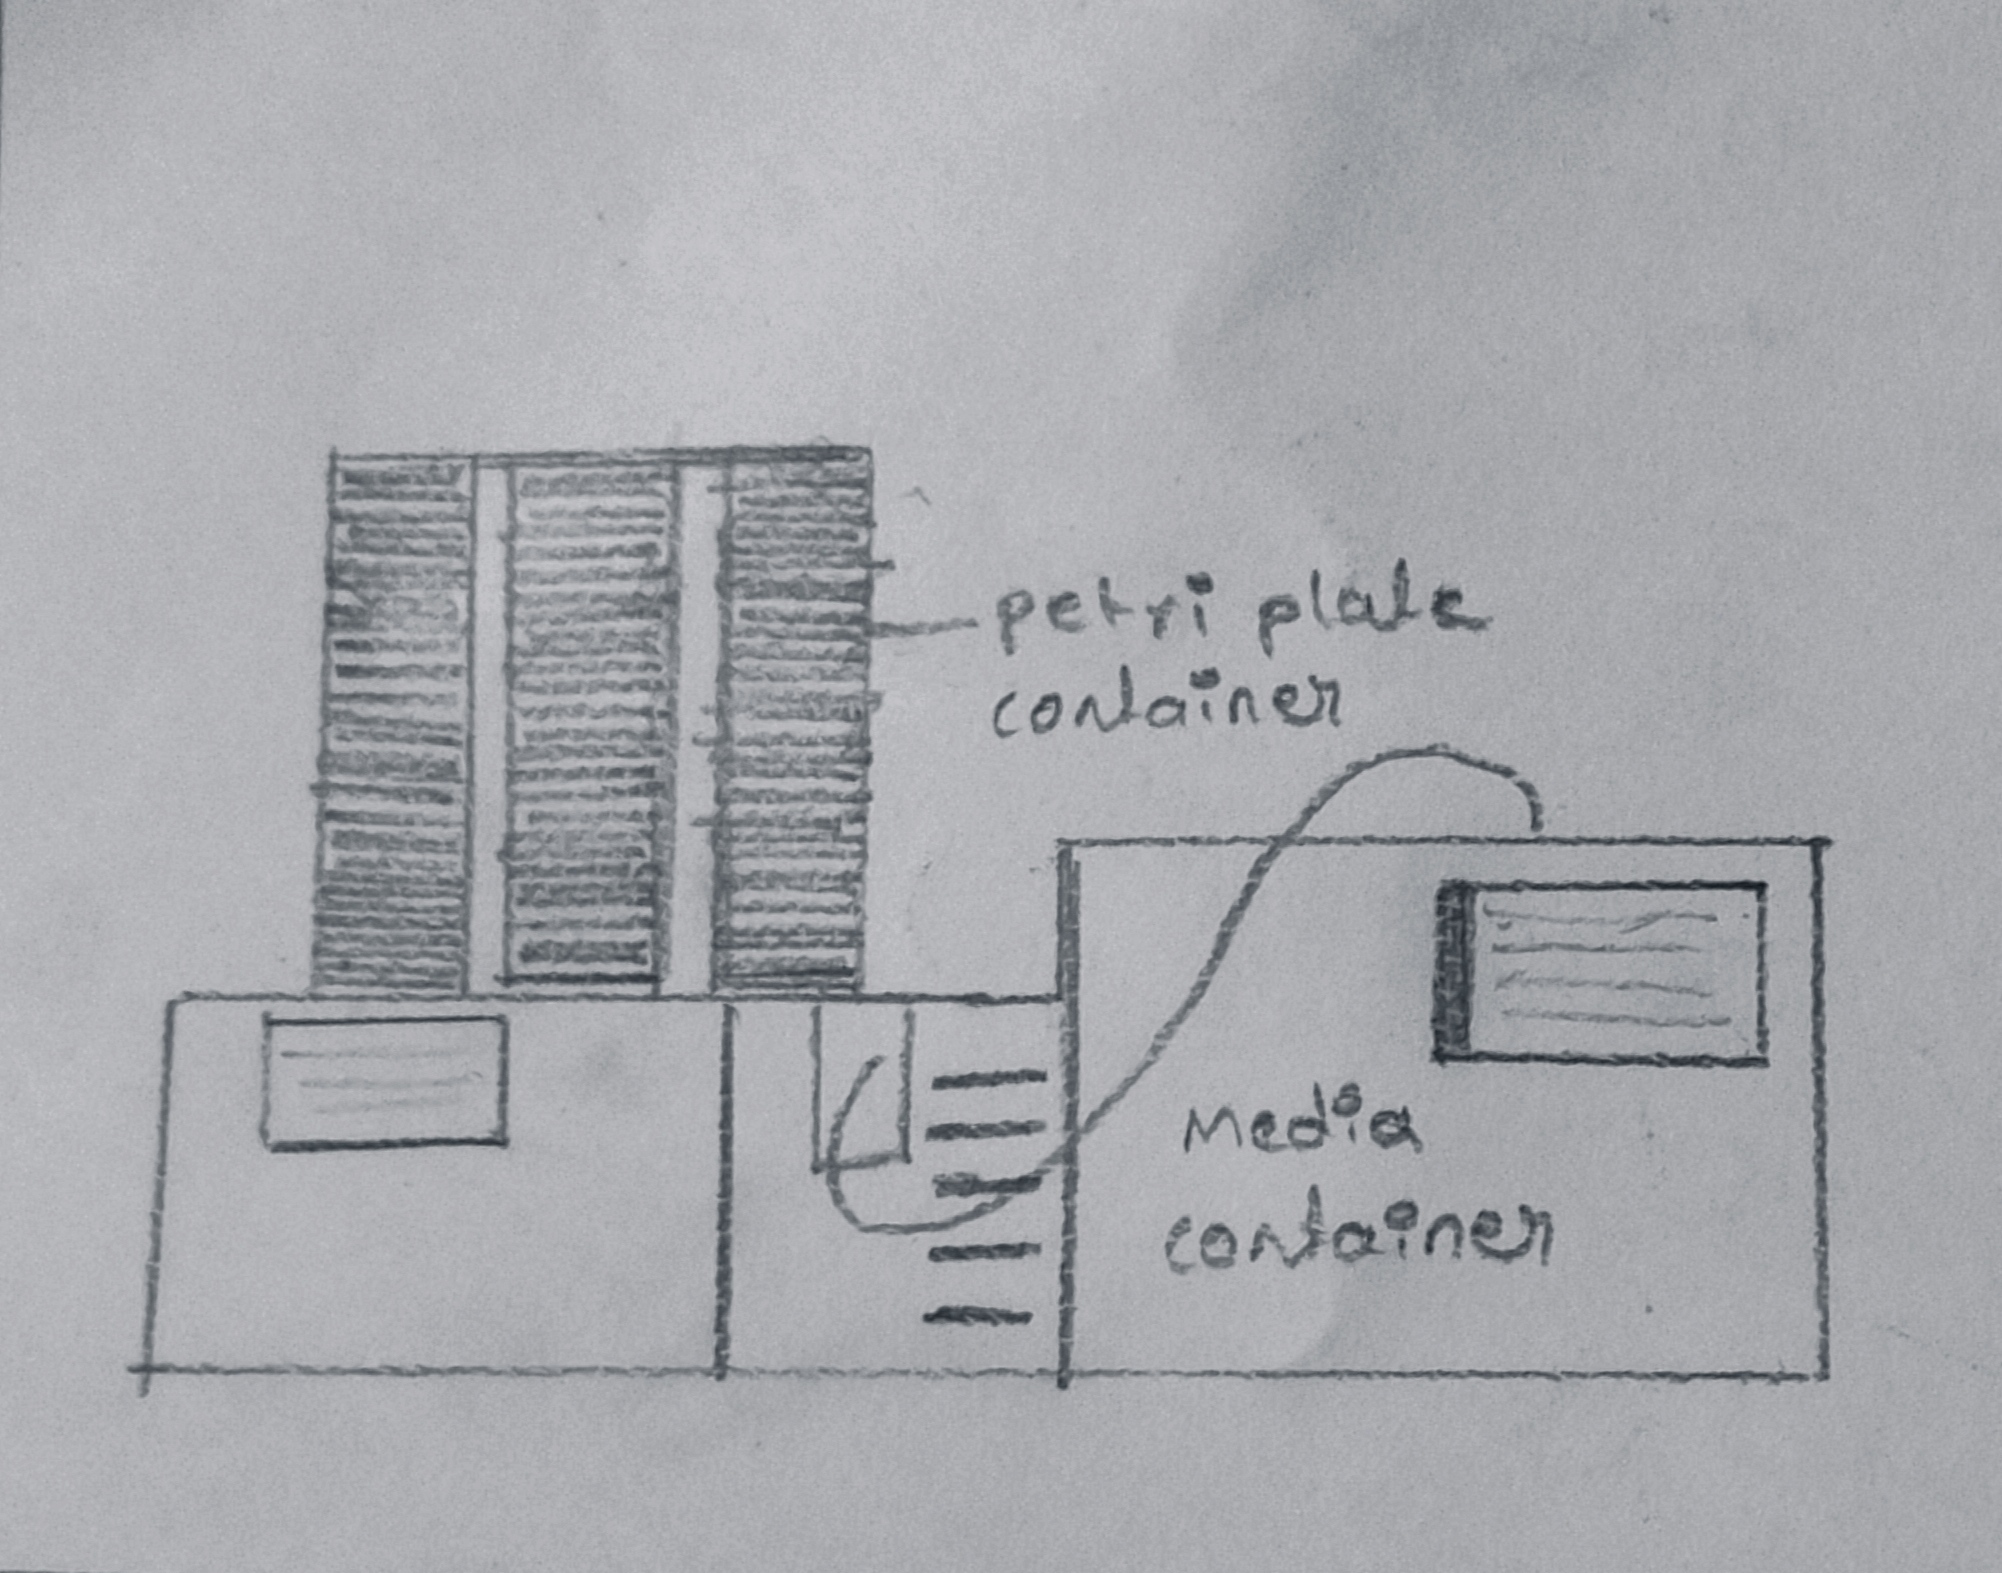 petri plate
container
Media
container